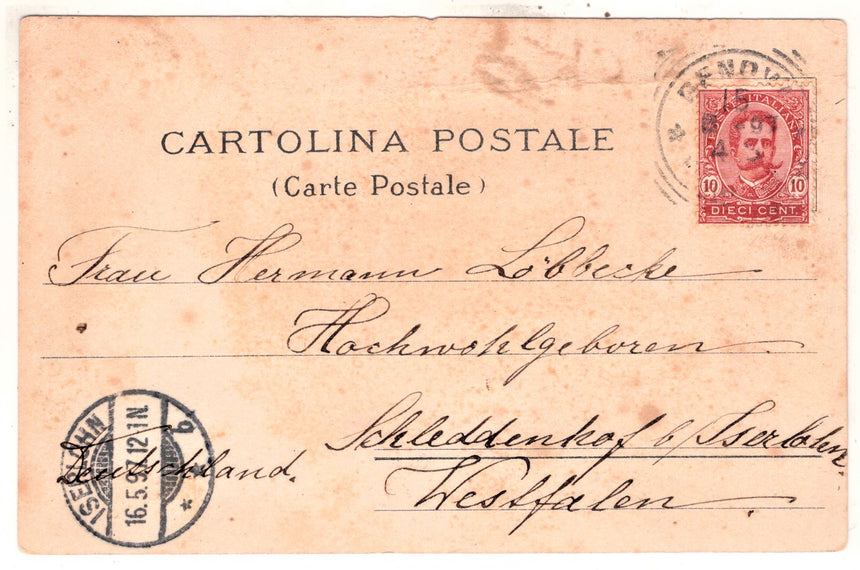 CARTOLINA POSTALE
(Carte Postale)
GENOVA
15
POSTE ITALIANE
10 10
DIECI CENT.
Frau Hermann Löbbecke
Hochwohlgeboren
Schleddenhof b/Iserlohn
Westfalen
Deutschland.
ISERLOHN
16.5.9 12-1N.
*